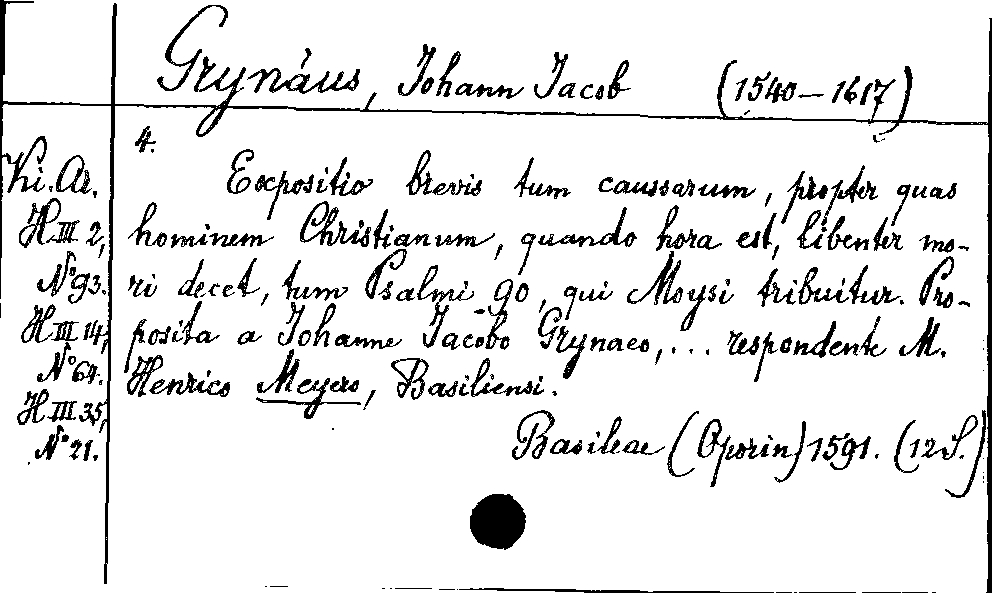 Grynäus, Johann Jacob (1540–1617)
4.
Ki. Ar.
H III 2,
No 93.
H III 14,
No 64.
H III 35,
No 21.
Expositio brevis tum caussarum, propter quas
hominem Christianum, quando hora est, libenter mo-
ri decet, tum Psalmi 90, qui Moysi tribuitur. Pro-
posita a Johanne Jacobo Grynaeo, ... respondente M.
Henrico Meyero, Basiliensi.
Basileae (Oporin) 1591. (12 S.)